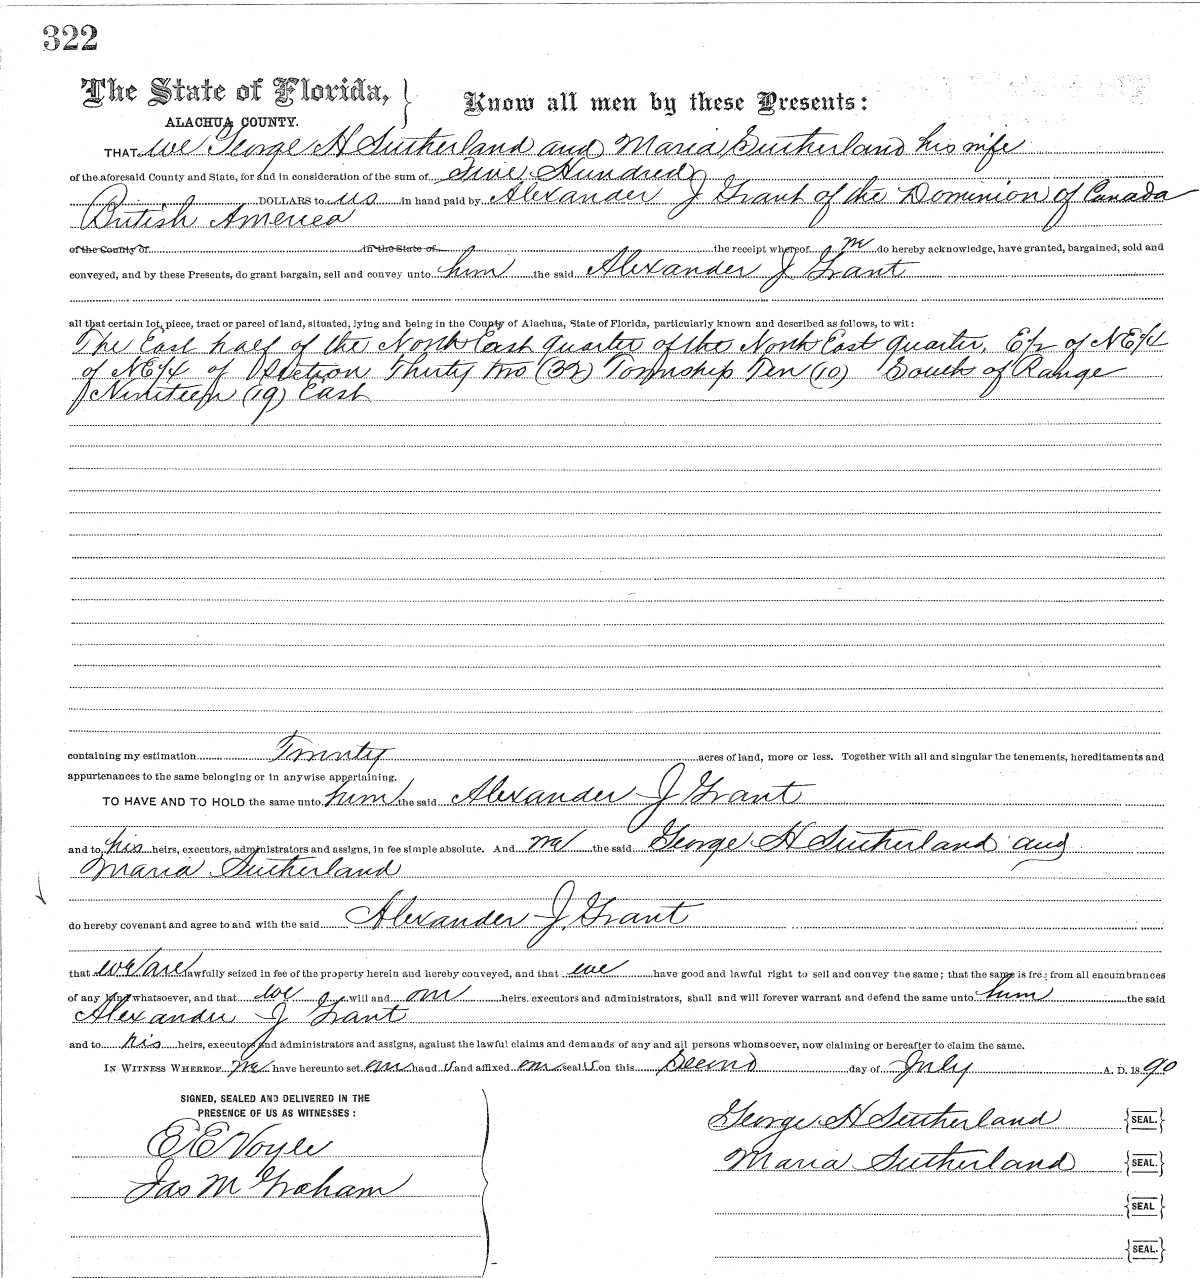 322
The State of Florida,
ALACHUA COUNTY.
Know all men by these Presents:
THAT we George H Sutherland and Maria Sutherland his wife
of the aforesaid County and State, for and in consideration of the sum of Five Hundred
DOLLARS to us in hand paid by Alexander J Grant of the Dominion of Canada
British America
of the County of in the State of the receipt whereof we do hereby acknowledge, have granted, bargained, sold and
conveyed, and by these Presents, do grant bargain, sell and convey unto him the said Alexander J Grant
all that certain lot, piece, tract or parcel of land, situated, lying and being in the County of Alachua, State of Florida, particularly known and described as follows, to wit:
The East half of the North East quarter of the North East quarter, E/2 of NE/4
of NE/4 of Section Thirty two (32) Township Ten (10) South of Range
Nineteen (19) East
containing my estimation Twenty acres of land, more or less. Together with all and singular the tenements, hereditaments and
appurtenances to the same belonging or in anywise appertaining.
TO HAVE AND TO HOLD the same unto him the said Alexander J Grant
and to his heirs, executors, administrators and assigns, in fee simple absolute. And we the said George H Sutherland and
Maria Sutherland
do hereby covenant and agree to and with the said Alexander J. Grant
that we are lawfully seized in fee of the property herein and hereby conveyed, and that we have good and lawful right to sell and convey the same; that the same is free from all encumbrances
of any kind whatsoever, and that we will and our heirs, executors and administrators, shall and will forever warrant and defend the same unto him the said
Alexander J Grant
and to his heirs, executors and administrators and assigns, against the lawful claims and demands of any and all persons whomsoever, now claiming or hereafter to claim the same.
IN WITNESS WHEREOF we have hereunto set our hand s and affixed our seal s on this Second day of July A. D. 1890
SIGNED, SEALED AND DELIVERED IN THE
PRESENCE OF US AS WITNESSES:
E E Voyle
Jas M Graham
George H Sutherland {SEAL.}
Maria Sutherland {SEAL.}
{SEAL}
{SEAL.}